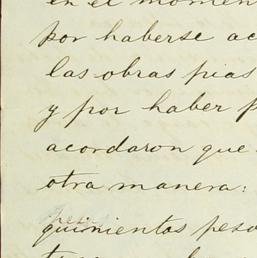 en el momen
por haberse ac
las obras pias
y por haber p
acordaron que
otra manera:
quinientos peso